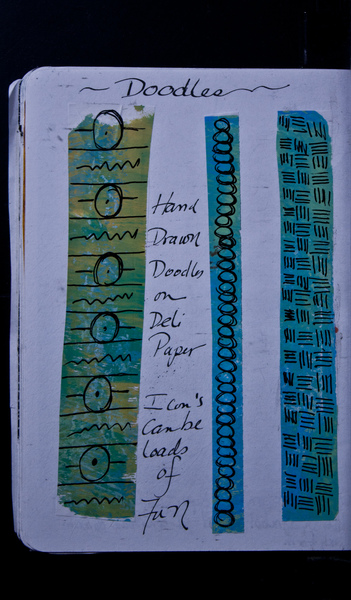 ~ Doodles ~
Hand
Drawn
Doodles
on
Deli
Paper
Icon's
can be
loads
of
Fun